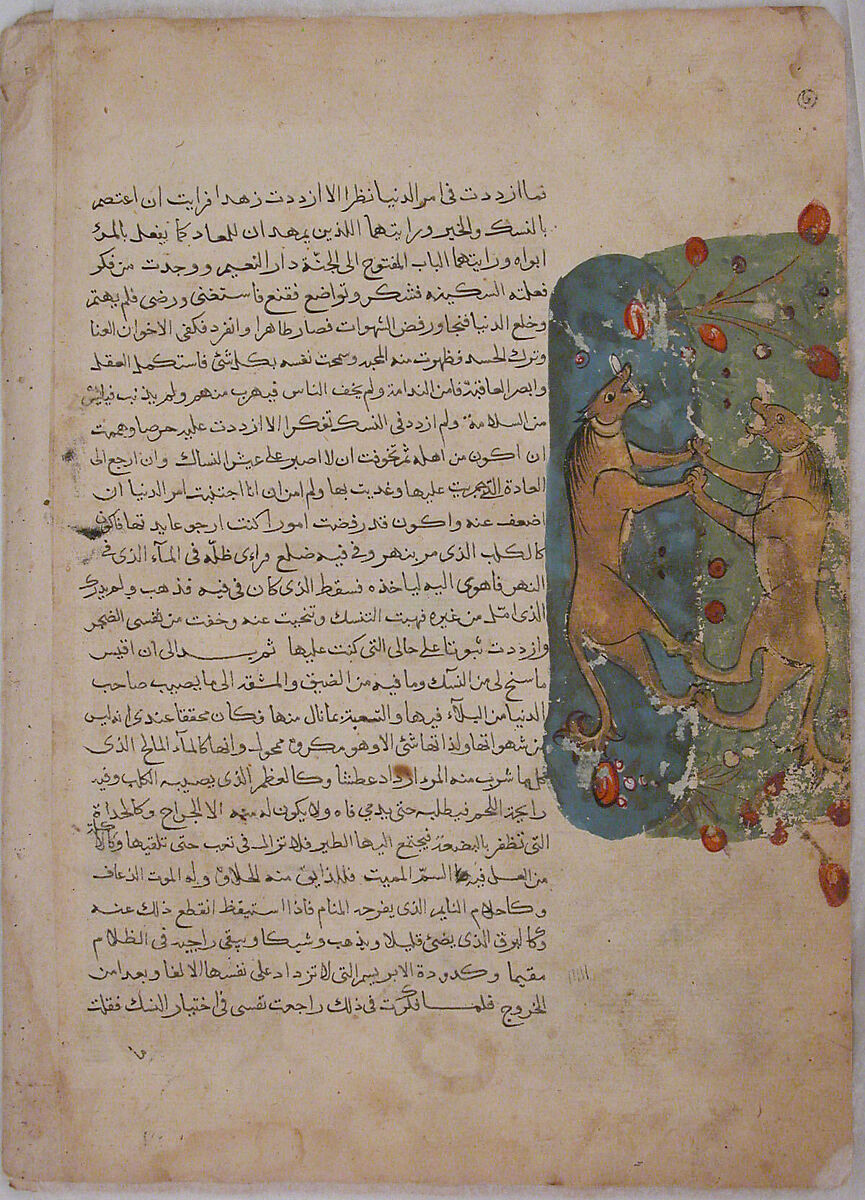 فما ازددت فى امر الدنيا نظرا الا ازددت زهدا فرايت ان اعتصم
بالنسك والخير ورايتهما اللذين يمهدان للمعاد كما يفعل بالمرء
ابواه ورايتهما الباب المفتوح الى الجنة دار النعيم ووجدت من فكر
فعلته السكينه فشكر وتواضع فقنع فاستغنى ورضى فلم يهتم
وخلع الدنيا فنجا ورفض الشهوات فصار طاهرا وانفرد فكفى الاخوان العنا
وترك الحسد فظهرت منه المحبه وسمحت نفسه بكل شئ فاستكمل العقل
وابصر العاقبة فامن الندامة ولم يخف الناس فيهرب منهم ولم يذنب
من السلامة ولم ازدد فى النسك تفكرا الا ازددت عليه حرصا وهممت
ان اكون من اهله ثم تخوفت ان لا اصبر على عيش النساك وان ارجع الى
العادة التى جريت عليها وغذيت بها ولم امن ان انا اجتنبت امر الدنيا ان
اضعف عنه واكون قد رفضت امورا كنت ارجو عايدتها فاكون
كالكلب الذى مر بنهر وفى فيه ضلع فراى ظله فى المآء الذى فى
النهر فاهوى اليه لياخذه فسقط الذى كان فى فيه فذهب ولم يدرك
الذى امل من غيره فهبت التنسك وتنحيت عنه وخفت من نفسى الضجر
وازددت ثبوتا على حالى التى كنت عليها ثم بدا لى ان اقيس
ما سنح لى من النسك وما فيه من الضيق والمشقه الى ما يصيب صاحب
الدنيا من البلآء فيها والتمتع بما نال منها وكان محققا عندى انه ليس
من شهواتها ولذاتها شئ الا وهو مكروه محول وانها كالمآء المالح الذى
كلما شرب منه المرء ازداد عطشا وكالعظم الذى يصيبه الكلب وفيه
رايحة اللحم فيطلبه حتى يدمى فاه ولا يكون له منه الا الجراح وكالحداة
التى تظفر بالبضعة فيجتمع اليها الطير فلا تزال فى تعب حتى تلقيها وكالاناء
من العسل فيه السم المميت فللذايق منه الحلاوة وله الموت الذعاف
وكاحلام النايم الذى يفرحه المنام فاذا استيقظ انقطع ذلك عنه
وكالبرق الذى يضئ قليلا ويذهب وشيكا ويبقى راجيه فى الظلام
مقيما وكدودة الابريسم التى لا تزداد على نفسها الا لفا وبعدا من
الخروج فلما فكرت فى ذلك راجعت نفسى فى اختيار النسك فقلت